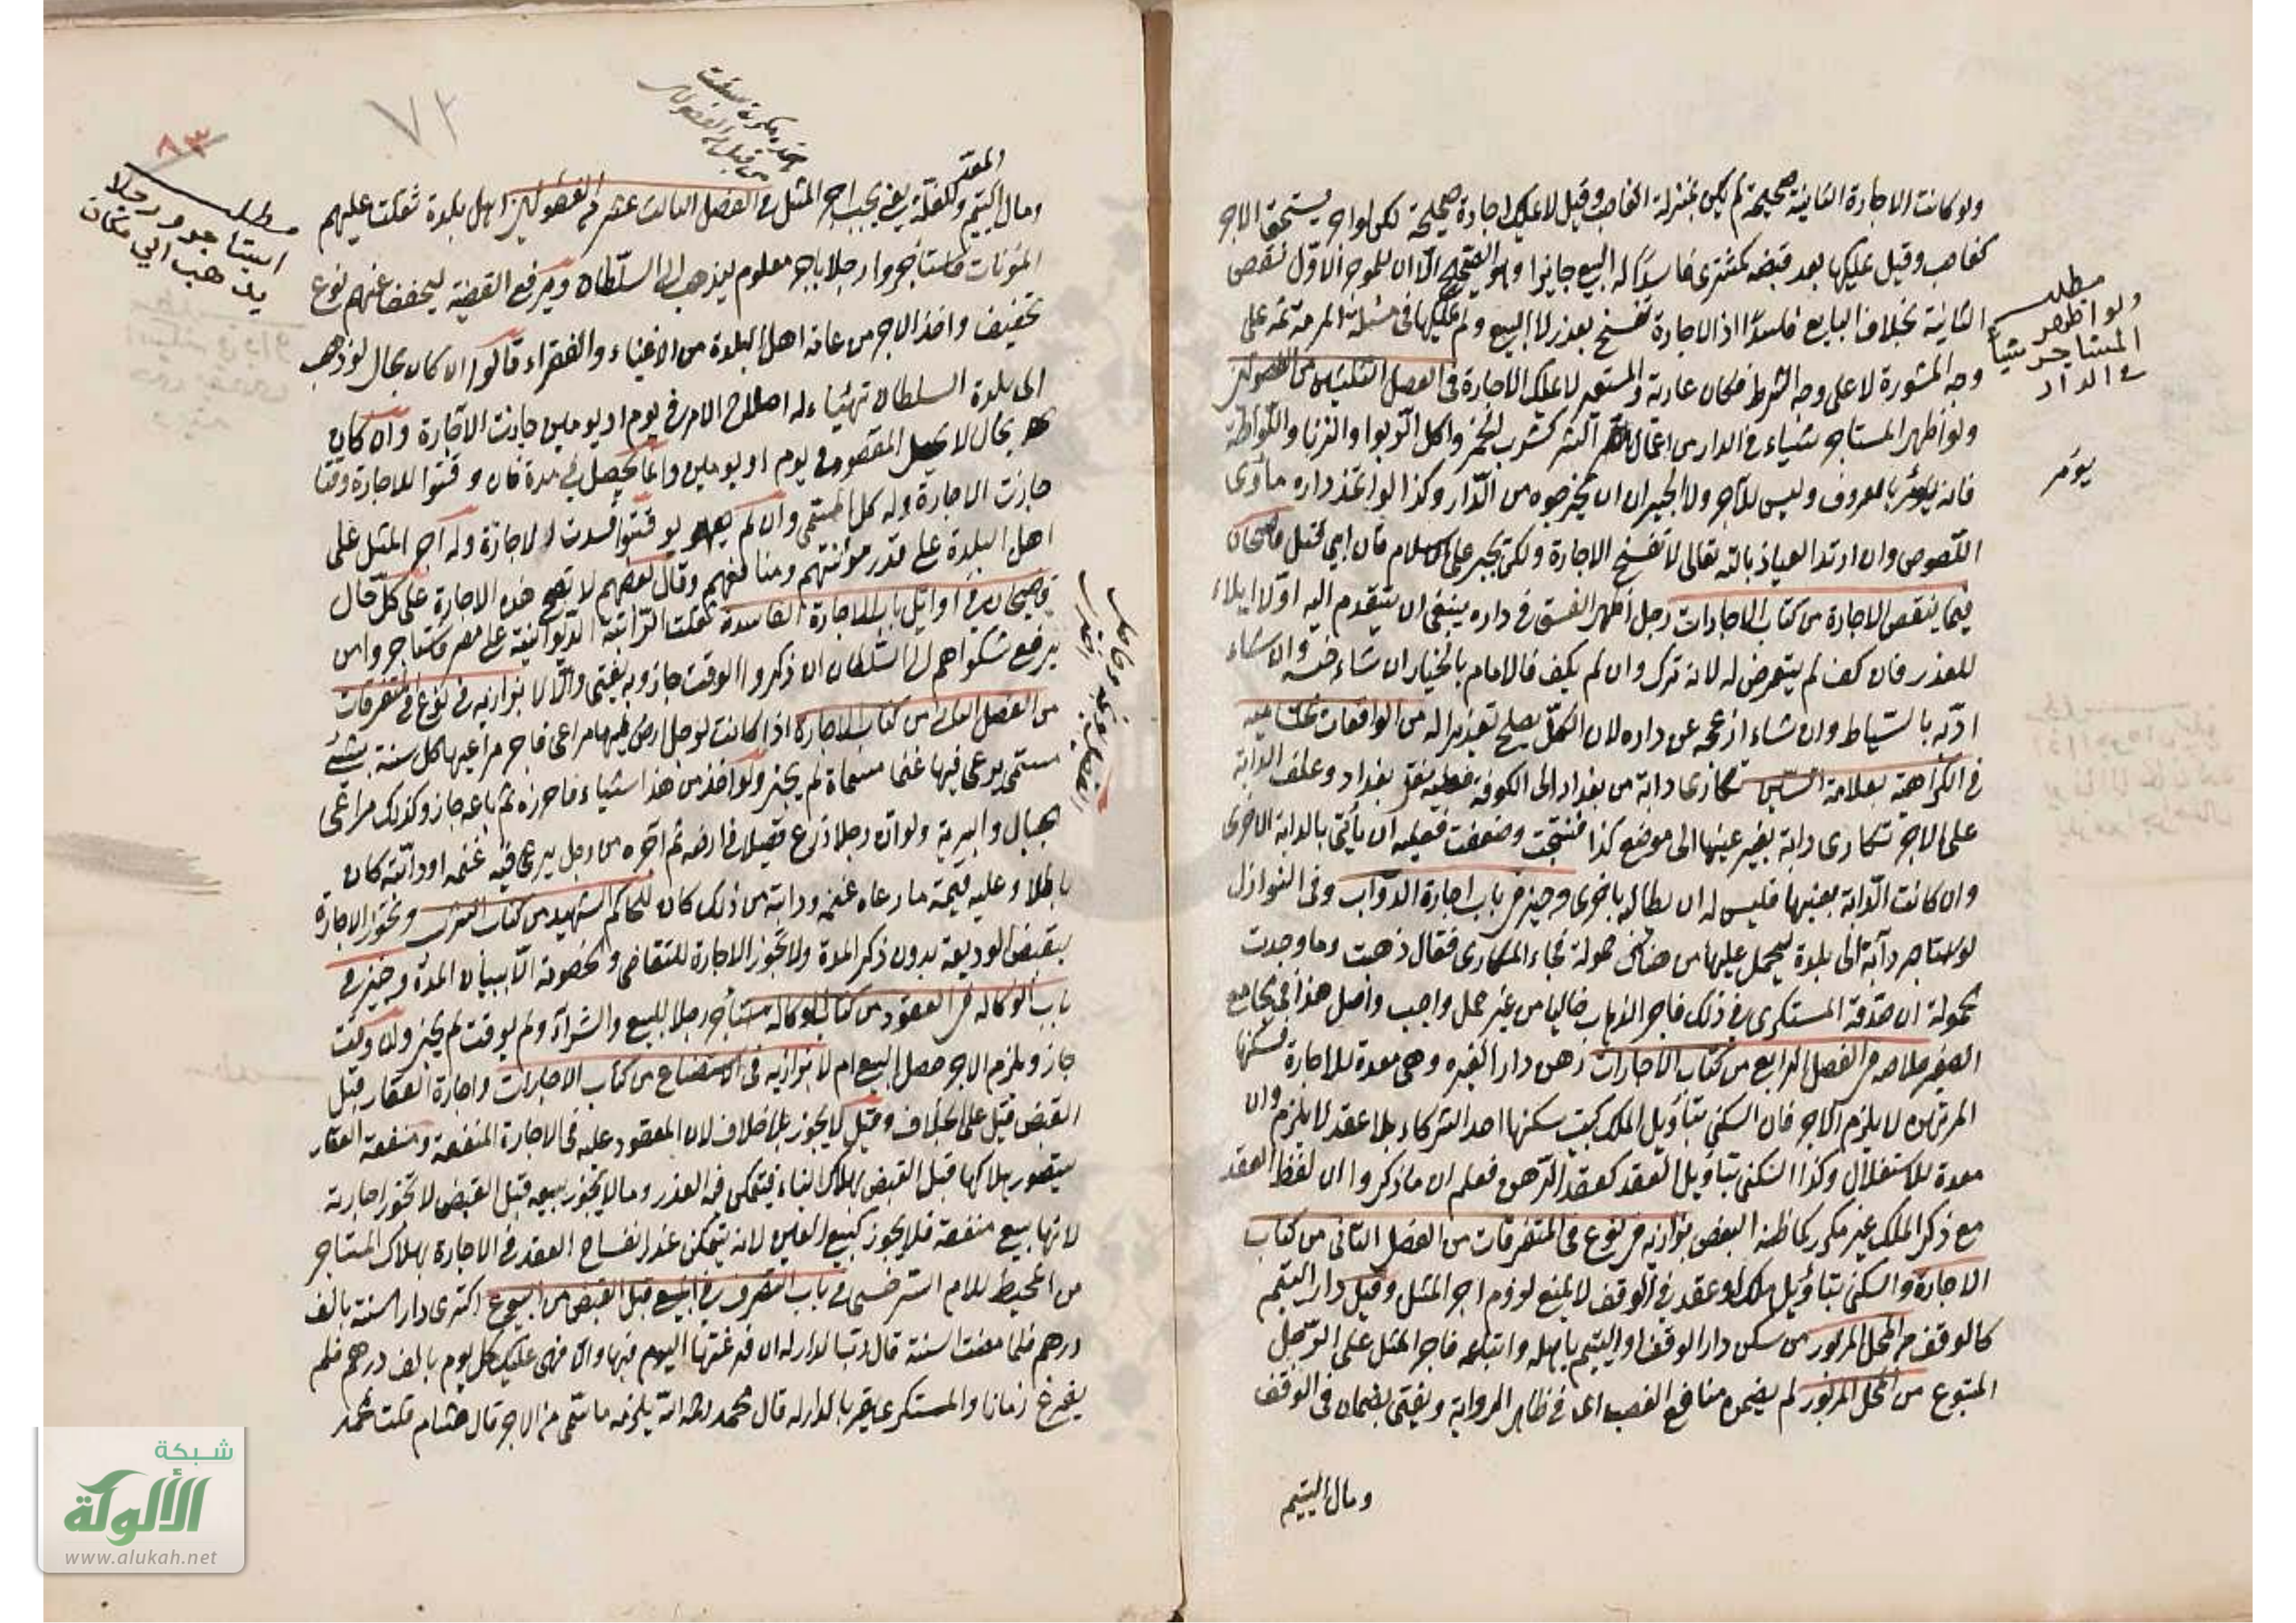 ولو كانت الاجارة الثانية صحيحة لم يكن بمنزلة الغاصب وقيل لا يملك اجارة صحيحة لكن لو اجر يستحق الاجر
كغاصب وقيل يملكها بعد قبضه كمشترى فاسدا له البيع جايزا وهو الصحيح الا ان للموجر الاول نقض
الثانية بخلاف البايع فاسدا اذ الاجارة تفسخ بعذر لا البيع ولم يملكها فى مسئلة المرمة ثمه على
وجه المشورة لا على وجه الشرط فكان عارية والمستعير لا يملك الاجارة فى الفصل الثلثين من الفصولين
ولو اظهر المستاجر شياء فى الدار من اعمال الشر كشرب الخمر واكل الربوا والزنا واللواطة
فانه يؤمر بالمعروف وليس للآجر ولا الجيران ان يخرجوه من الدار وكذا لو اتخذ داره مأوى
اللصوص وان ارتد العياذ بالله تعالى لا تفسخ الاجارة ولكن يجبر على الاسلام فان ابى قتل قاضيخان
فيما ينقض الاجارة من كتاب الاجارات رجل اظهر الفسق فى داره ينبغى ان يتقدم اليه اولا ابلاء
للعذر فان كف لم يتعرض له لانه ترك وان لم يكف فالامام بالخيار ان شاء حبسه وان شاء
ادبه بالسياط وان شاء ازعجه عن داره لان الكل يصلح تعزيرا له من الواقعات
فى الكراهية بعلامة السين تكارى دابة من بغداد الى الكوفة بغداد وعلف الدابة
على الاجر تكارى دابة بغير عينها الى موضع كذا فنتجت وضعفت فعليه ان يأتى بالدابة الاخرى
وان كانت الدابة بعينها فليس له ان يطالبه باخرى وجيز فى باب اجارة الدواب وفى النوازل
لو استاجر دابة الى بلدة ليحمل عليها من هناك حمولة فجاء المكارى فقال ذهبت وما وجدت
حمولة ان صدقه المستكرى فى ذلك فاجر الذهاب خاليا من غير حمل واجب واصل هذا فى الجامع
الصغير خلاصه فى الفصل الرابع من كتاب الاجارات رهن دار الغيره وهى معدة للاجارة فسكنها
المرتهن لا يلزم الاجر فان السكنى بتأويل الملك كبيت سكنها احد الشركاء بلا عقد لا يلزم وان
معدة للاستغلال وكذا السكنى بتأويل العقد كعقد الرهن فعلم ان ما ذكروا ان لفظ العقد
مع ذكر الملك غير مكرر كما ظنه البعض بزازيه فى نوع فى المتفرقات من الفصل الثانى من كتاب
الاجارة والسكنى بتأويل ملك او عقد فى الوقف لا يمنع لزوم اجر المثل وقيل دار اليتيم
كالوقف من المحل المزبور من سكن دار الوقف او اليتيم باهله واتباعه فاجر المثل على الرجل
المتبوع من المحل المزبور لم يضمنوه منافع الغصب اى فى ظاهر الرواية ويفتى بضمان فى الوقف
ومال اليتيم
مطلب
ولو اظهر
المستاجر شيأ
فى الدار
يؤمر
٧٢
٨٣
مطلب
استاجرو رجلا
يذهب الى مكان
المعد
ومال اليتيم وللغلة يعنى يجب اجر المثل فى الفصل الثالث عشر من الفصولين اهل بلدة ثقلت عليهم
المؤنات فاستأجروا رجلا باجر معلوم ليذهب الى السلطان ويرفع القضية ليخفف عنهم نوع
تخفيف واخذ الاجر من عامة اهل البلدة من الاغنياء والفقراء قالوا ان كان بحال لو ذهب
الى بلدة السلطان تهيئاء له اصلاح الامر فى يوم او يومين جازت الاجارة وان كان
بحال لا يحصل المقصود فى يوم او يومين وانما يحصل فى مدة فان وقتوا للاجارة وقتا
جازت الاجارة وله كل المسمى وان لم يوقتوا فسدت الاجارة وله اجر المثل على
اهل البلدة على قدر مؤنتهم ومنافعهم وقال بعضهم لا تصح هذه الاجارة على كل حال
قاضيخان فى اوائل باب الاجارة الفاسدة ثقلت النوائب الديوانية على مصر فاستاجروا من
يرفع شكواهم الى السلطان ان ذكروا الوقت جاز وبه يفتى والا لا بزازيه فى نوع فى المتفرقات
من الفصل الثانى من كتاب الاجارة اذا كانت لرجل ارض فيها مراعى فاجر مراعيها كل سنة بشئ
مسمى يرعى فيها غنما مسماة لم يجز ولو اخذ من هذا شياء فاحرزه ثم باعه جاز وكذلك مراعى
جبال والبرية ولو ان رجلا زرع قصيلا فى ارضه ثم اجره من رجل يرعى فيه غنمه او دابته كان
باطلا وعليه قيمة ما رعاه غنمه ودابته من ذلك كان للحاكم الشهيد من كتاب الشرب وتجوز الاجارة
بقبض الوديعة بدون ذكر المدة ولا تجوز الاجارة للتقاضى والخصومة الا ببيان المدة وجيز فى
باب الوكالة فى العقود من كتاب الوكالة استأجر رجلا للبيع والشراء ولم يوقت لم يجز وان وقت
جاز ويلزم الاجر حصل البيع ام لا بزازيه فى الاستصناع من كتاب الاجارات واجارة العقار قبل
القبض قيل على الخلاف وقيل لا يجوز بلا خلاف لان المعقود عليه فى الاجارة المنفعة ومنفعة العقار
يتصور هلاكها قبل القبض بهلاك البناء فيتمكن فيه الغرر وما لا يجوز بيعه قبل القبض لا تجوز اجارته
لانها بيع منفعة فلا يجوز كبيع العين لانه يتمكن غرر انفساخ العقد فى الاجارة بهلاك المستاجر
من المحيط للامام السرخسى فى باب التصرف فى المبيع قبل القبض من البيوع اكترى دار السنة بالف
درهم فلما مضت السنة قال رب الدار له ان فرغتها اليوم فبها والا فهى عليك كل يوم بالف درهم فلم
يفرغ زمانا والمستكرى يقر بالدار له قال محمد رحمه الله يلزمه ما سمى من الاجر قال هشام قلت لمحمد
شبكة
الألوكة
www.alukah.net